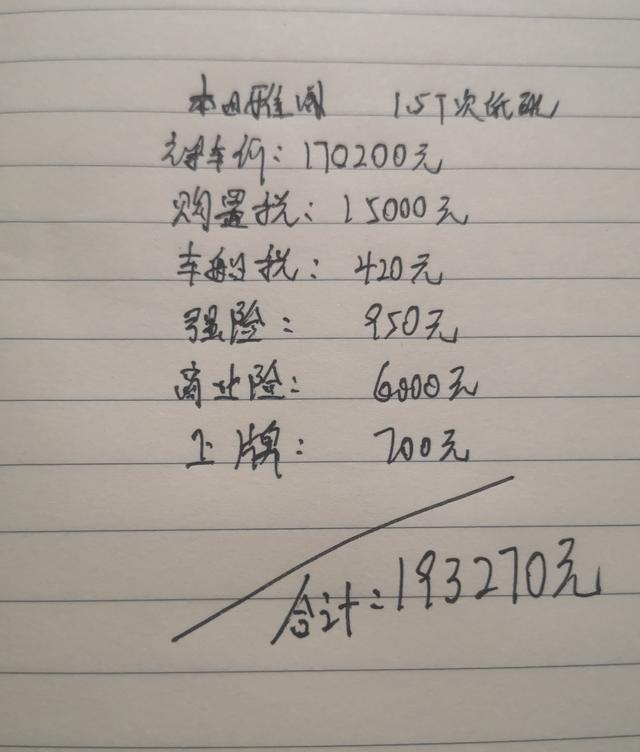 本田雅阁 1.5T次低配
裸车价：170200元
购置税：15000元
车船税：420元
强险：950元
商业险：6000元
上牌：700元
合计：193270元